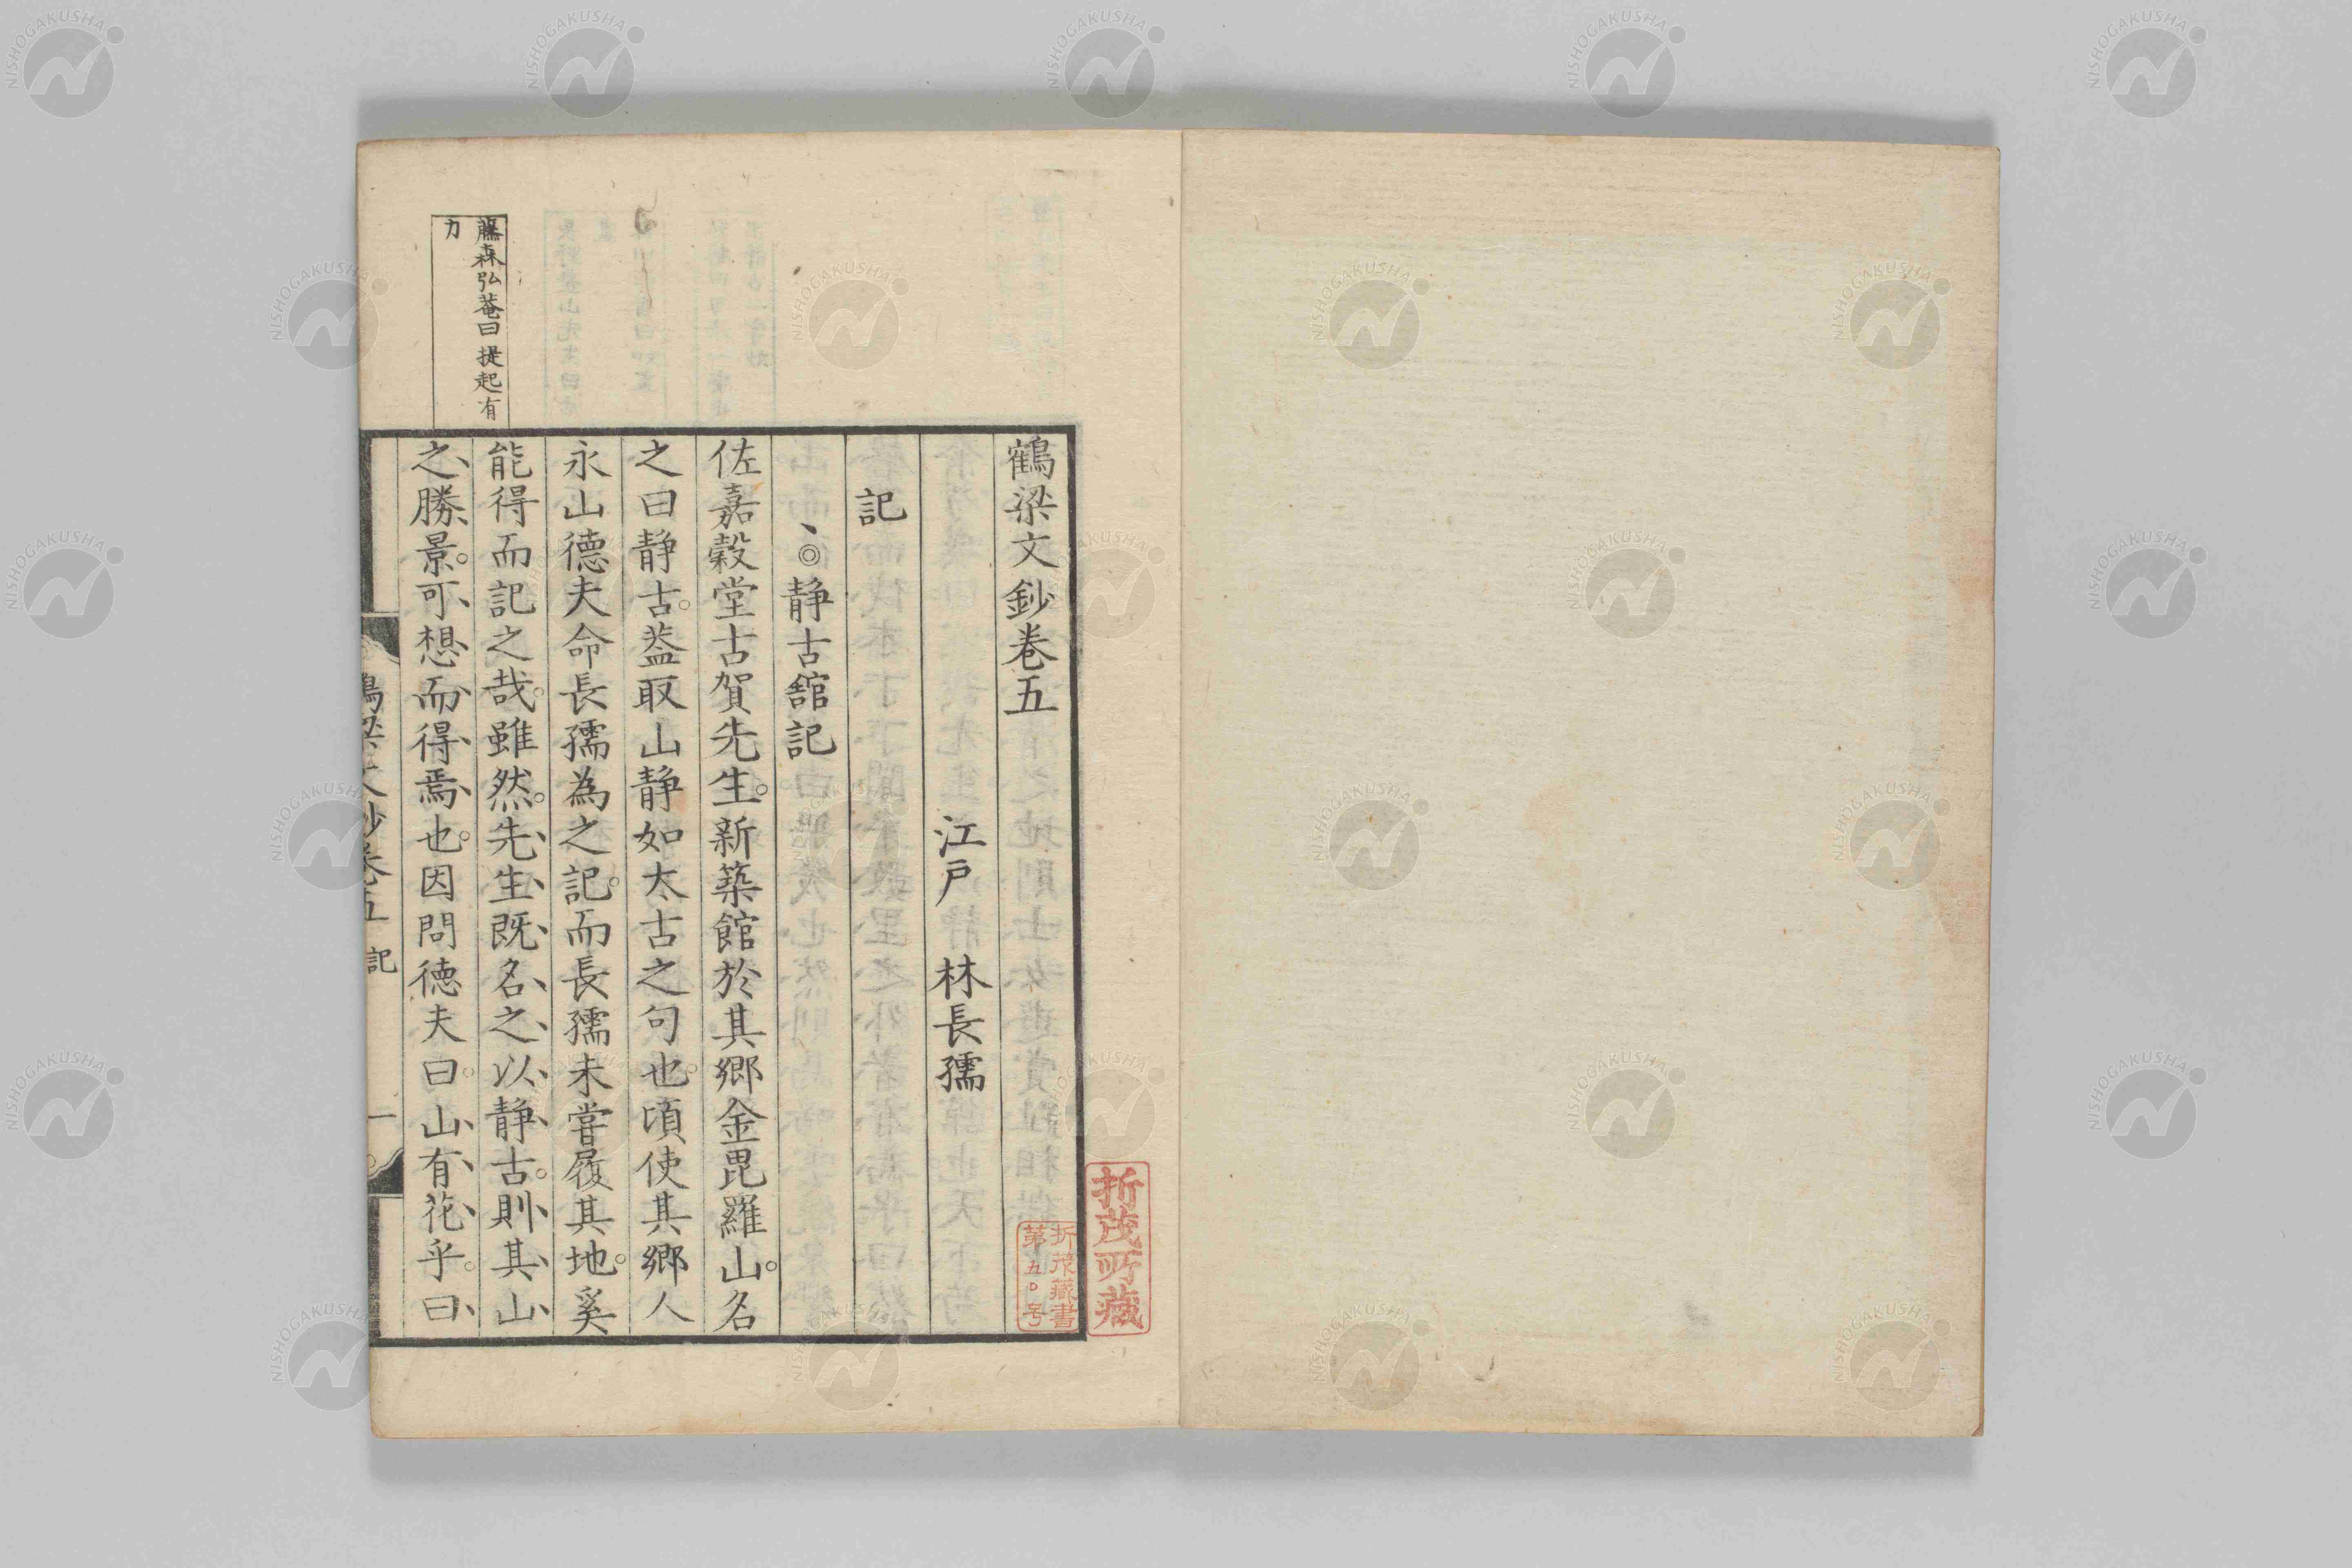 鶴梁文鈔卷五
江戸 林長孺
記
、◎静古舘記
佐嘉穀堂古賀先生。新築館於其郷金毘羅山。名
之曰静古。葢取山静如太古之句也。頃使其郷人
永山德夫命長孺為之記。而長孺未嘗履其地。奚
能得而記之哉。雖然。先生既名之以静古。則其山
之勝景。可想而得焉也。因問德夫曰。山有花乎。曰
藤森弘菴曰提起有
力
鶴梁文鈔卷五 記 一
折茂所藏
折茂藏書
第五〇号
NISHOGAKUSHA